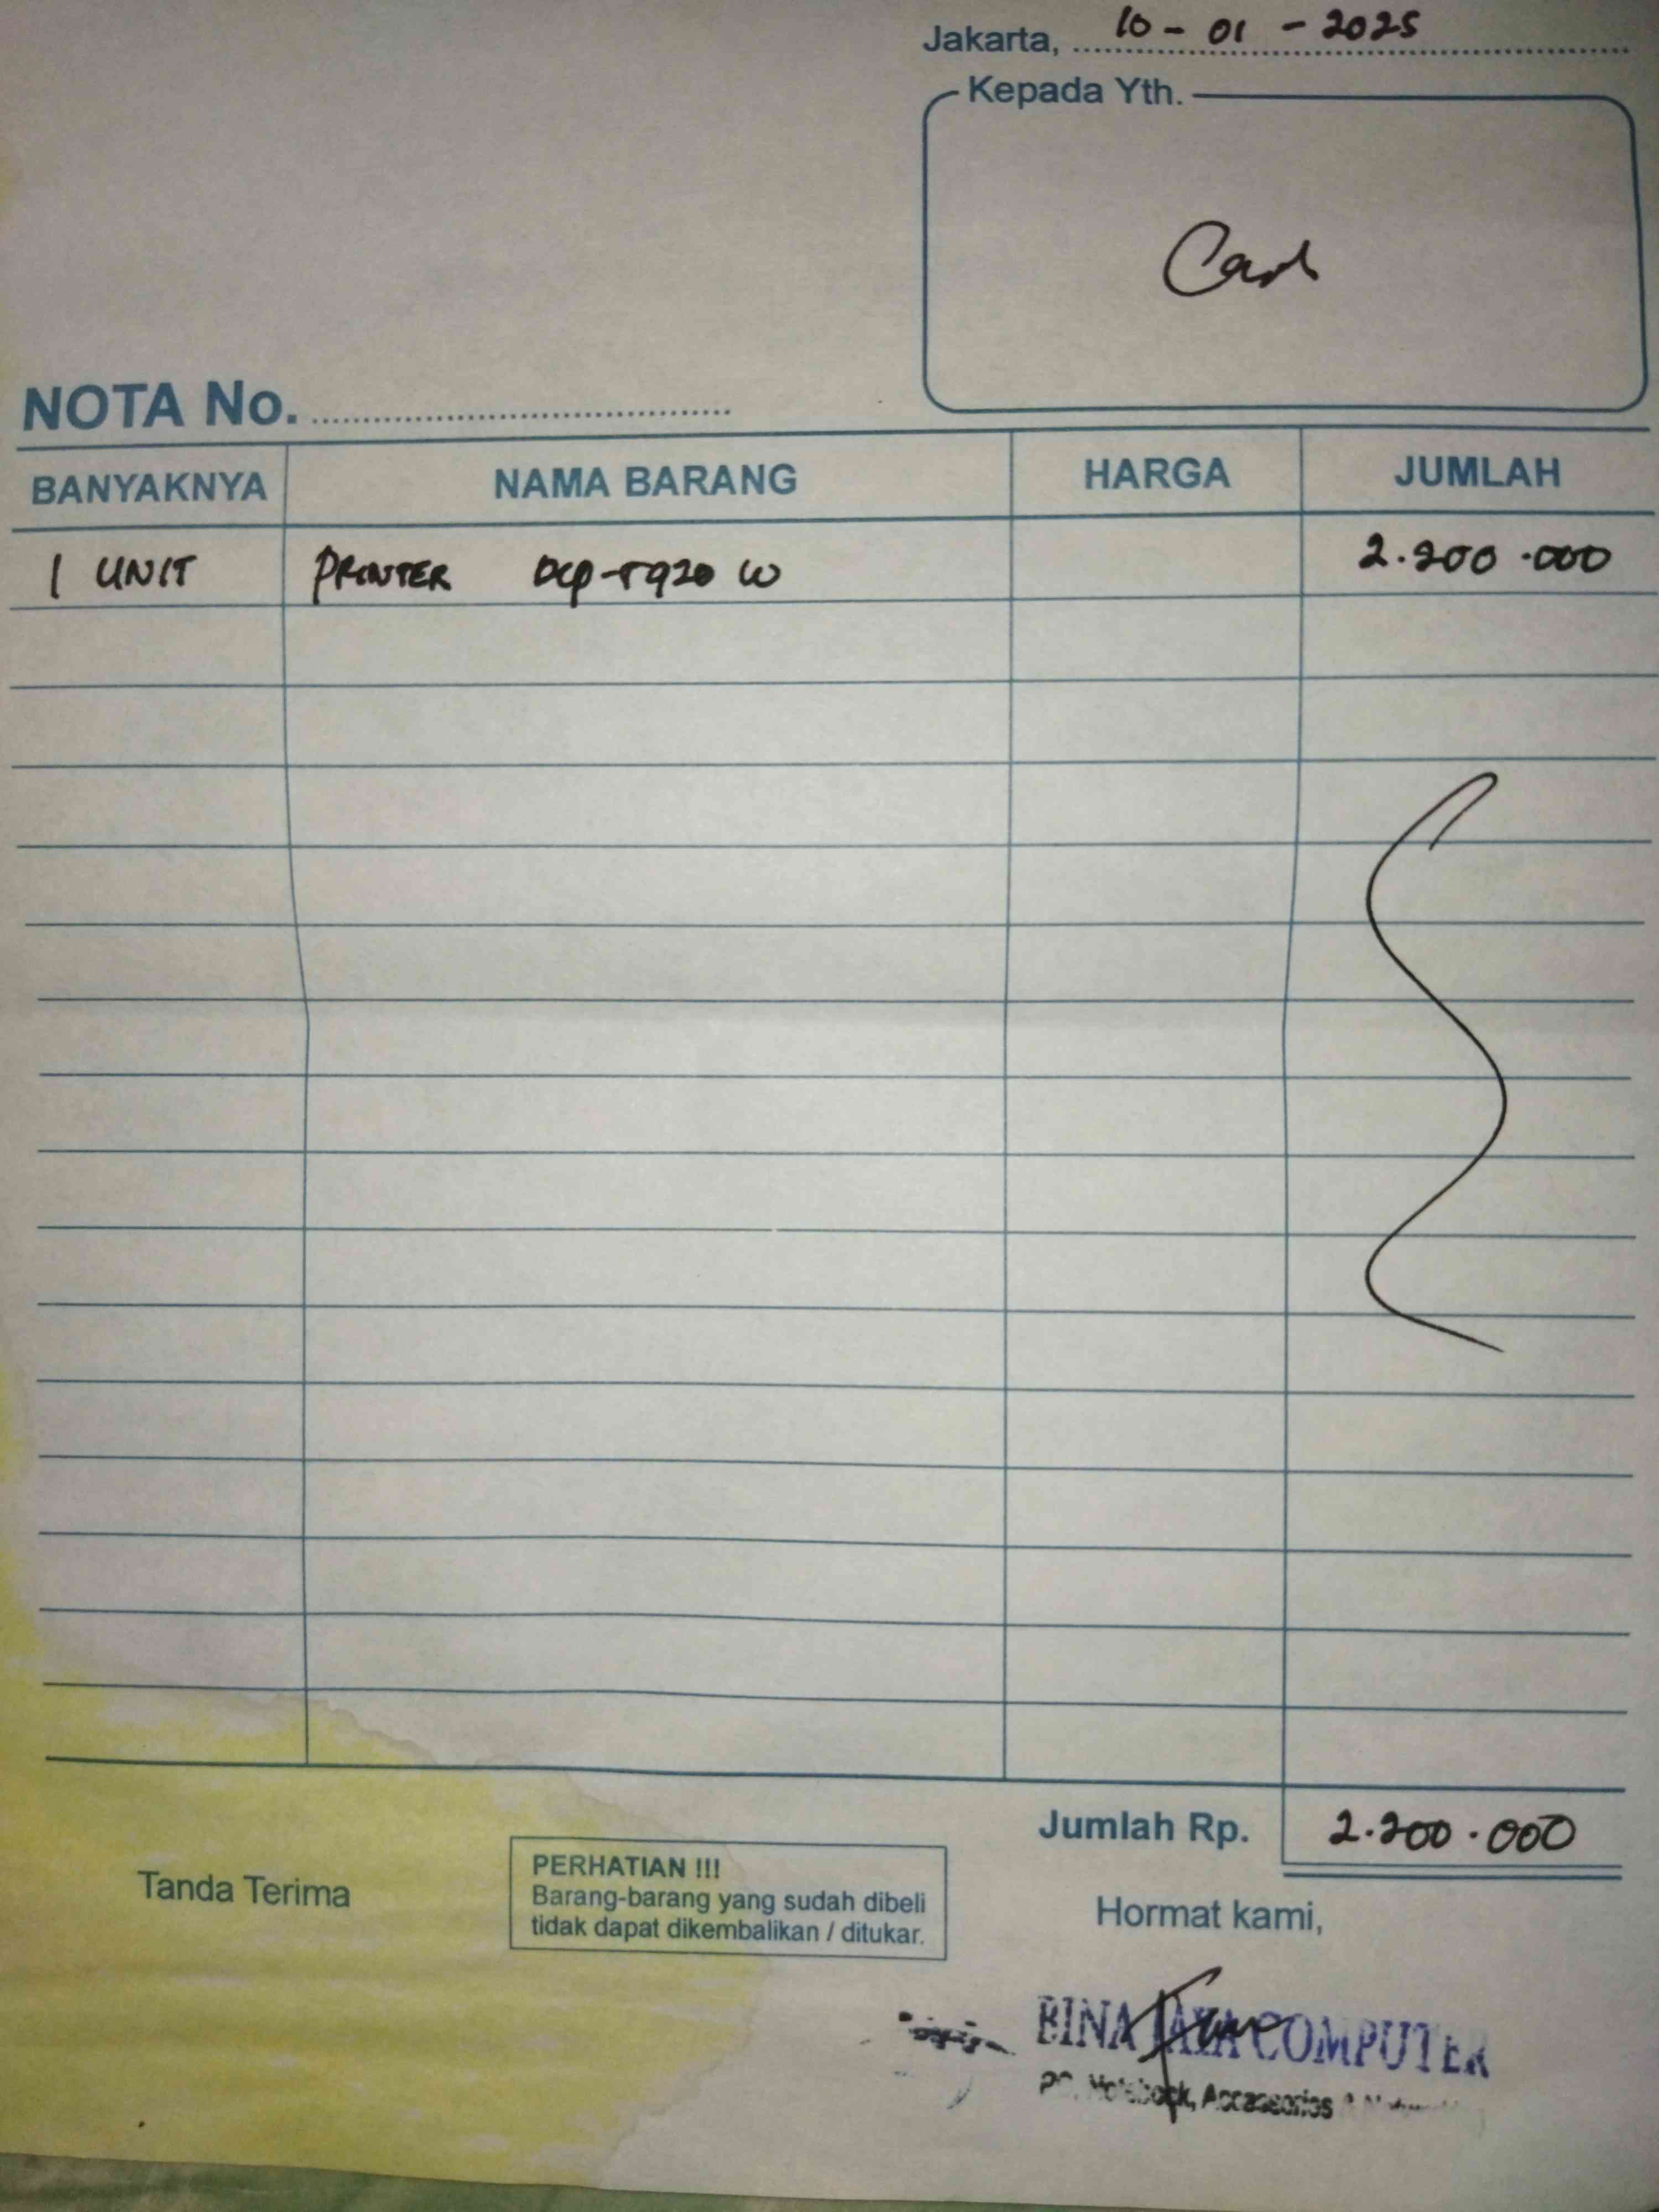 Jakarta, 10 - 01 - 2025
Kepada Yth.
Cash
NOTA No.
BANYAKNYA NAMA BARANG HARGA JUMLAH
1 UNIT PRINTER DCP-T920 W 2.200.000
Jumlah Rp. 2.200.000
Tanda Terima
PERHATIAN !!!
Barang-barang yang sudah dibeli
tidak dapat dikembalikan / ditukar.
Hormat kami,
BINA JAYA COMPUTER
PC, Notebook, Accessories